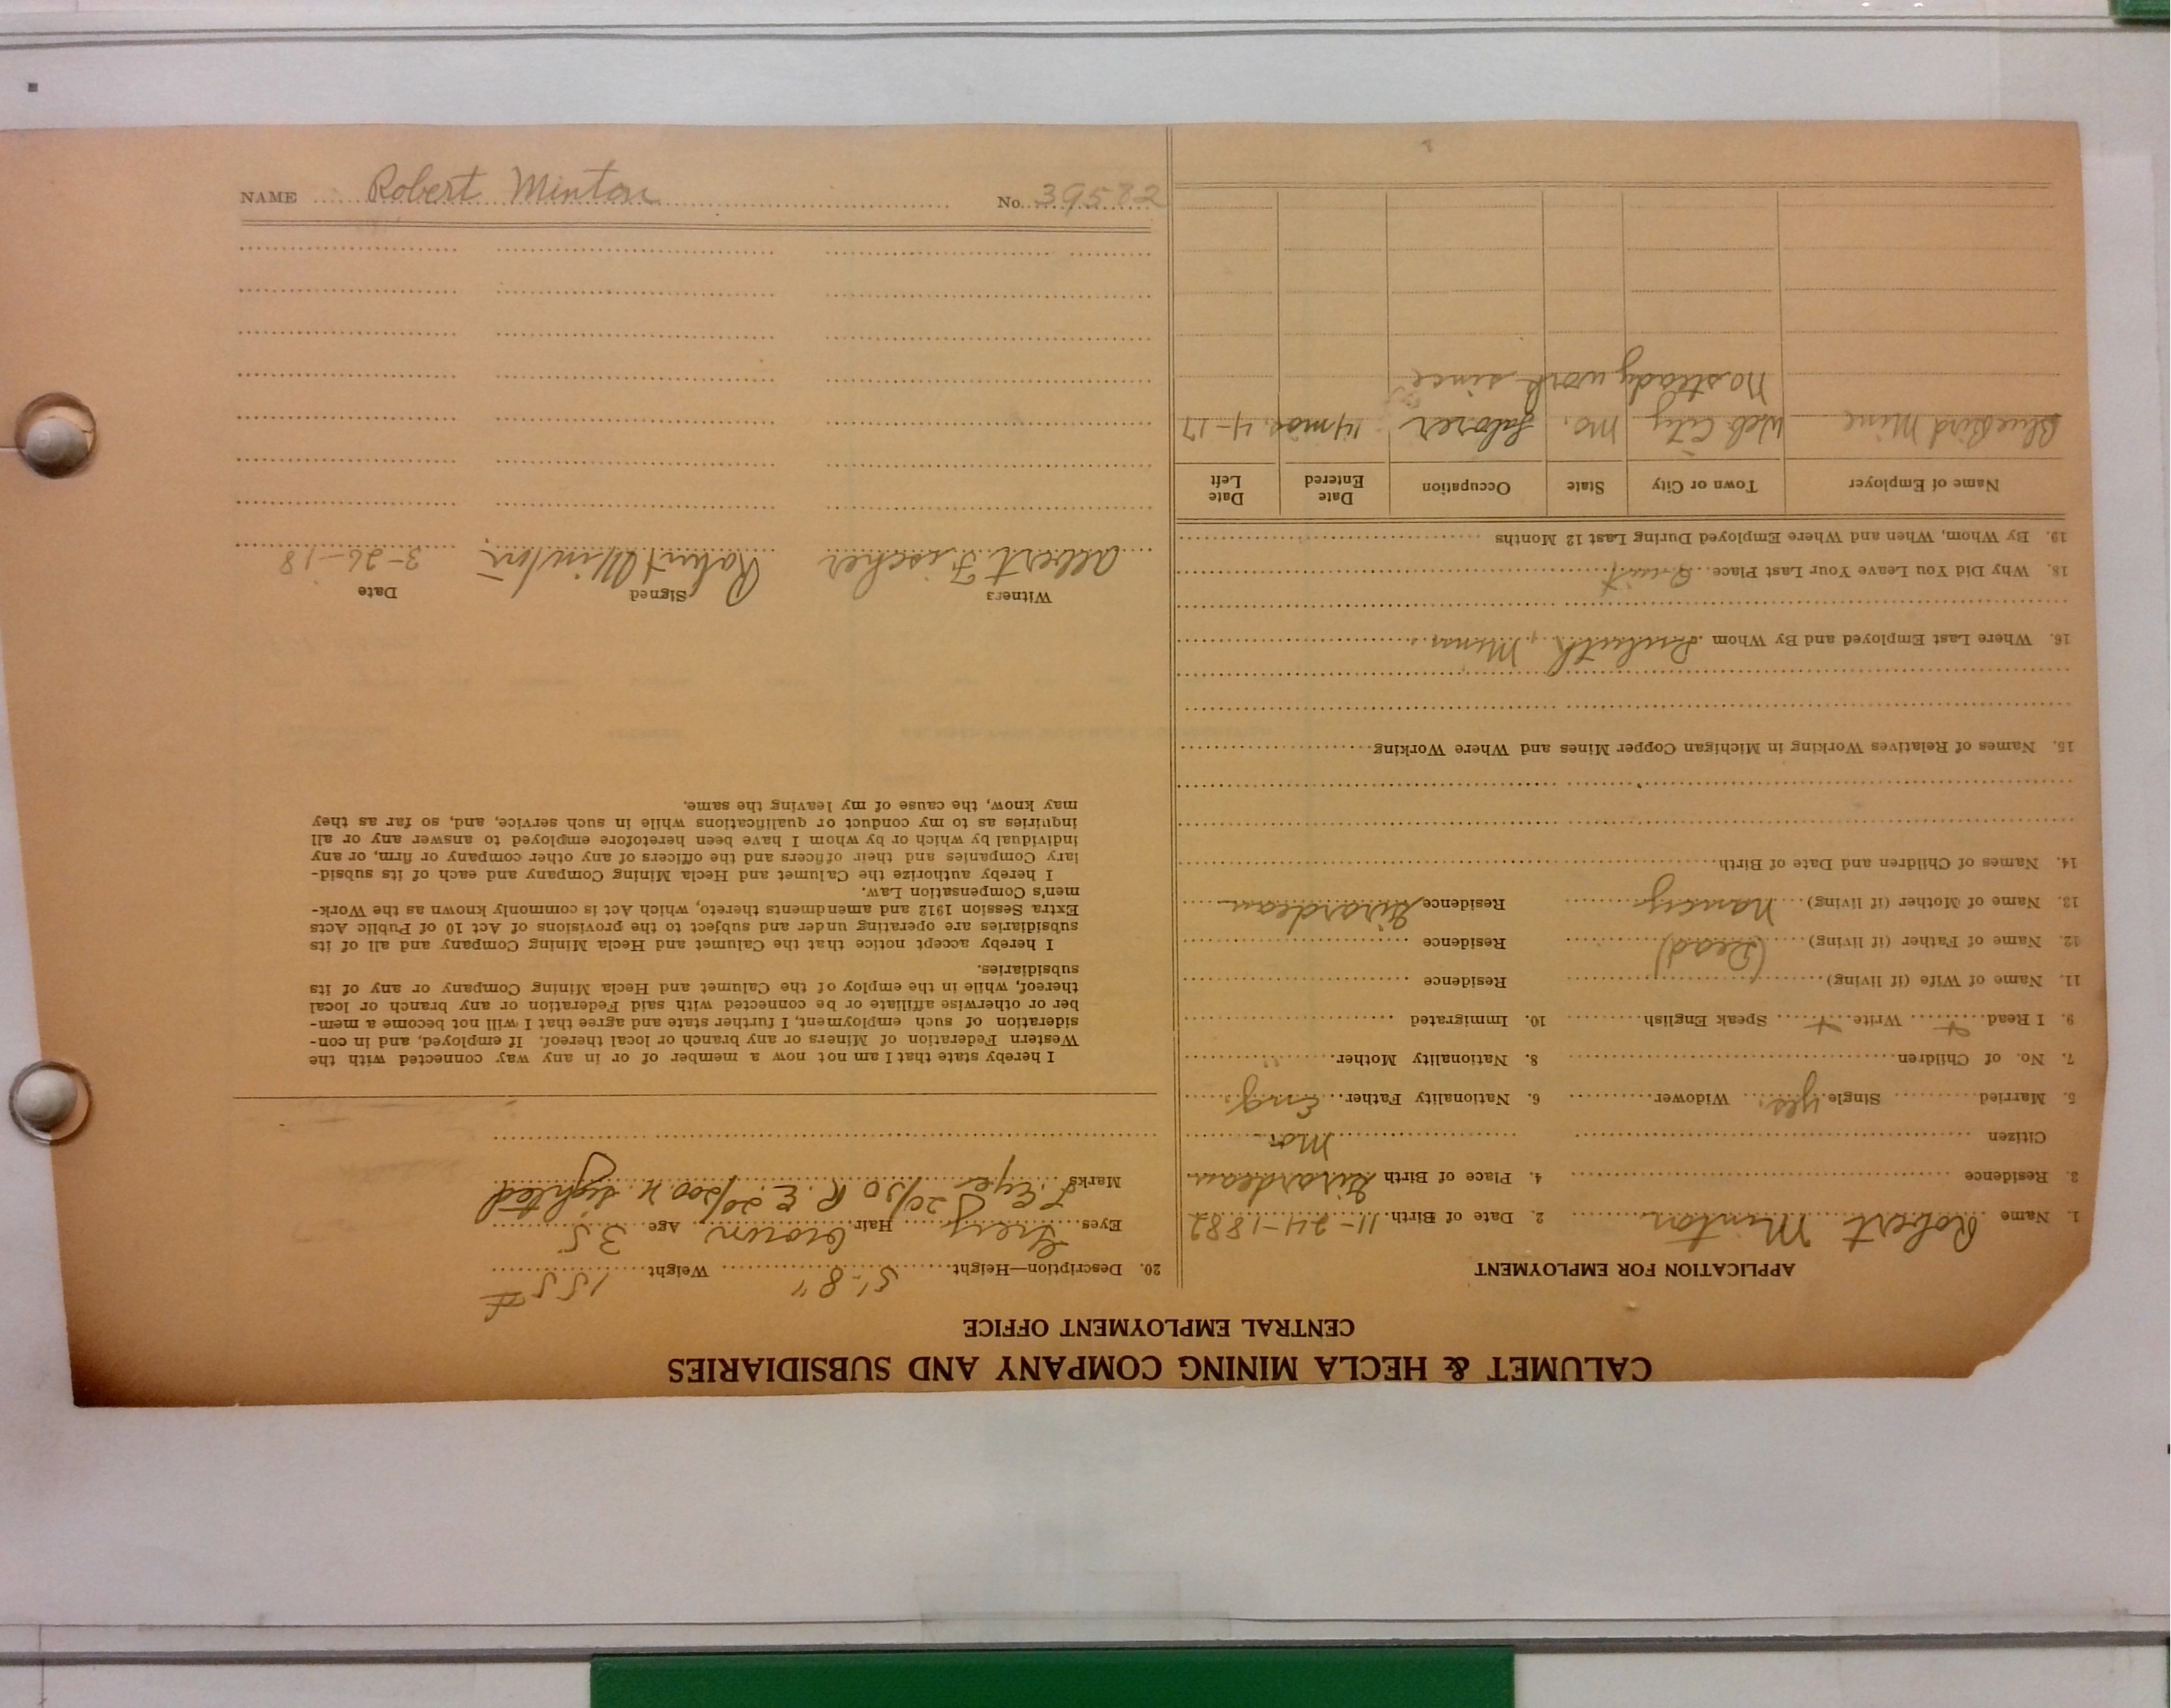 CALUMET & HECLA MINING COMPANY AND SUBSIDIARIES
CENTRAL EMPLOYMENT OFFICE
APPLICATION FOR EMPLOYMENT
1. Name Robert Minton 2. Date of Birth 11-24-1882
3. Residence 4. Place of Birth Girardeau
Citizen Mo.
5. Married Single yes. Widower 6. Nationality Father Eng.
7. No. of Children 8. Nationality Mother "
9. I Read Write Speak English 10. Immigrated
11. Name of Wife (if living) Residence
12. Name of Father (if living) (Dead) Residence
13. Name of Mother (if living) Nancy Residence Girardeau
14. Names of Children and Date of Birth
15. Names of Relatives Working in Michigan Copper Mines and Where Working
16. Where Last Employed and By Whom Duluth, Minn.
18. Why Did You Leave Your Last Place Quit
19. By Whom, When and Where Employed During Last 12 Months
Name of Employer Town or City State Occupation Date Entered Date Left
Bluebird Mine Web City Mo. Laborer 14 mos. 4-17
No steady work since
20. Description—Height 5'-8" Weight 155#
Eyes Grey Hair brown Age 35
Marks L. Eye 20/30 R. E. 20/200 N. Sighted
I hereby state that I am not now a member of or in any way connected with the
Western Federation of Miners or any branch or local thereof. If employed, and in con-
sideration of such employment, I further state and agree that I will not become a mem-
ber or otherwise affiliate or be connected with said Federation or any branch or local
thereof, while in the employ of the Calumet and Hecla Mining Company or any of its
subsidiaries.
I hereby accept notice that the Calumet and Hecla Mining Company and all of its
subsidiaries are operating under and subject to the provisions of Act 10 of Public Acts
Extra Session 1912 and amendments thereto, which Act is commonly known as the Work-
men's Compensation Law.
I hereby authorize the Calumet and Hecla Mining Company and each of its subsid-
iary Companies and their officers and the officers of any other company or firm, or any
individual by which or by whom I have been heretofore employed to answer any or all
inquiries as to my conduct or qualifications while in such service, and, so far as they
may know, the cause of my leaving the same.
Witness Signed Date
Albert Fischer Robert Minton 3-26-18
NAME Robert Minton No. 39582